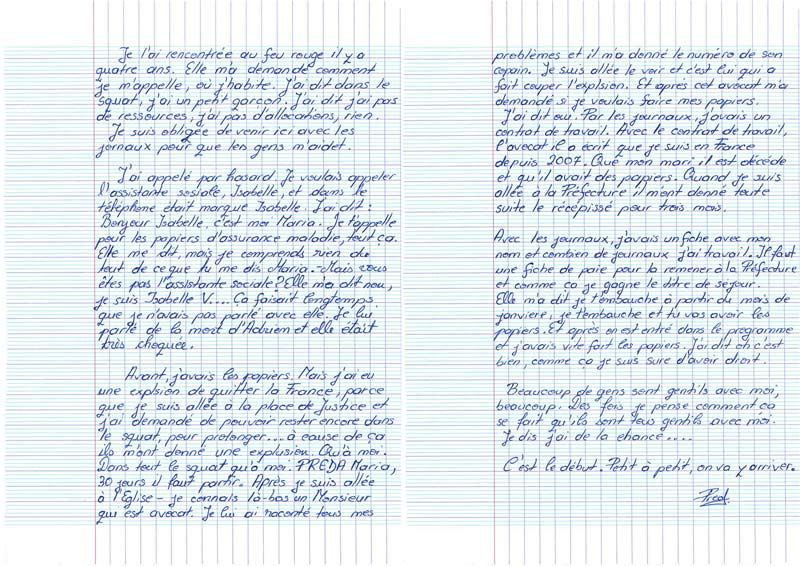 Je l'ai rencontrée au feu rouge il y a
quatre ans. Elle m'a demandé comment
je m'appelle, où j'habite. J'ai dit dans le
squat, j'ai un petit garçon. J'ai dit j'ai pas
de ressources, j'ai pas d'allocations, rien.
Je suis obligée de venir ici avec les
jornaux pour que les gens m'aidet.
J'ai appelé par hasard. Je voulais appeler
l'assistante sosiale, Isabelle, et dans le
téléphone était marqué Isabelle. J'ai dit :
Bonjour Isabelle, c'est moi Maria. Je t'appelle
pour les papiers d'assurance maladie, tout ça.
Elle me dit, mais je comprends rien du
tout de ce que tu me dis Maria. - Mais vous
êtes pas l'assistante sociale? Elle m'a dit nou,
je suis Isabelle V.... Ça faisait longtemps
que je n'avais pas parlé avec elle. Je lui
parlé de la mort d'Adrien et elle était
très choquée.
Avant, j'avais les papiers. Mais j'ai eu
une explsion de quitter la France, parce
que je suis allée à la place de Justice et
j'ai demandé de pouvoir rester encore dans
le squat, pour prolonger.... à cause de ça
ils m'ont donné une explusion. Qu'à moi.
Dans tout le squat qu'à moi. PREDA Maria,
30 jours il faut partir. Après je suis allée
à l'Eglise - je connais là-bas un Monsieur
qui est avocat. Je lui ai raconté tous mes
problèmes et il m'a donné le numéro de son
copain. Je suis allée le voir et c'est lui qui a
fait couper l'explsion. Et après cet avocat m'a
demandé si je voulais faire mes papiers.
J'ai dit oui. Par les journaux, j'avais un
contrat de travail. Avec le contrat de travail,
l'avocat il a écrit que je suis en France
depuis 2007. Que mon mari il est décédé
et qu'il avait des papiers. Quand je suis
allée à la Préfecture il m'ont donné toute
suite le récépissé pour trois mois.
Avec les journaux, j'avais un fiche avec mon
nom et combien de journaux j'ai travail. Il faut
une fiche de paie pour la remener à la Préfecture
et comme ça je gagne le titre de sejour.
Elle m'a dit je t'embauche à partir du mois de
janviere, je t'embauche et tu vas avoir les
papiers. Et après on est entré dans le programme
et j'avais vite fait les papiers. J'ai dit oh c'est
bien, comme ça je suis sure d'avoir droit.
Beaucoup de gens sont gentils avec moi,
beaucoup. Des fois je pense comment ça
se fait qu'ils sont tous gentils avec moi.
Je dis j'ai de la chance....
C'est le début. Petit à petit, on va y arriver.